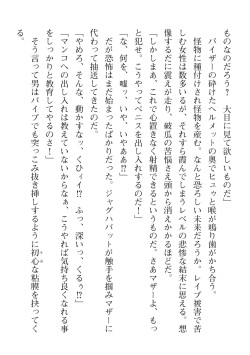 ものなのだろう?　大目に見て欲しいものだ」
　バイザーの砕けたヘルメットの奥でヒュゥと喉が鳴り歯がかち合う。
　怪物に種付けされ怪物を産む。なんと恐ろしい未来だろうか。レイプ被害で苦
しむ女性は数多いるが、それすら霞んでしまうレベルの悲惨な結末に思える。想
像するだに震えが走り、破瓜の苦悩さえ頭から消えかかるほどだ。
「しかしまあ、これで心置きなく射精できるというものだ。さあマザーよ、もっ
と犯せ、こうやってペニスを出し入れするのだ!」
「な、何を、嘘、いや、いやああ⁉」
　だが恐怖はまだ始まったばかりだった。ジャグバットが触手を掴みマザーに
代わって抽送してきたのだ。
「やめろ、そんな、動かすなッ、くひィ⁉　ふっ、深いっ、くるぅ⁉」
「マンコへの出し入れは教えていないからなぁ、こうやれば気持ち良くなれる事
をしっかりと教育してやるのさ!」
　そう言って男はバイブでも突っこみ抜き挿しするように初心な粘膜を抉ってく
る。